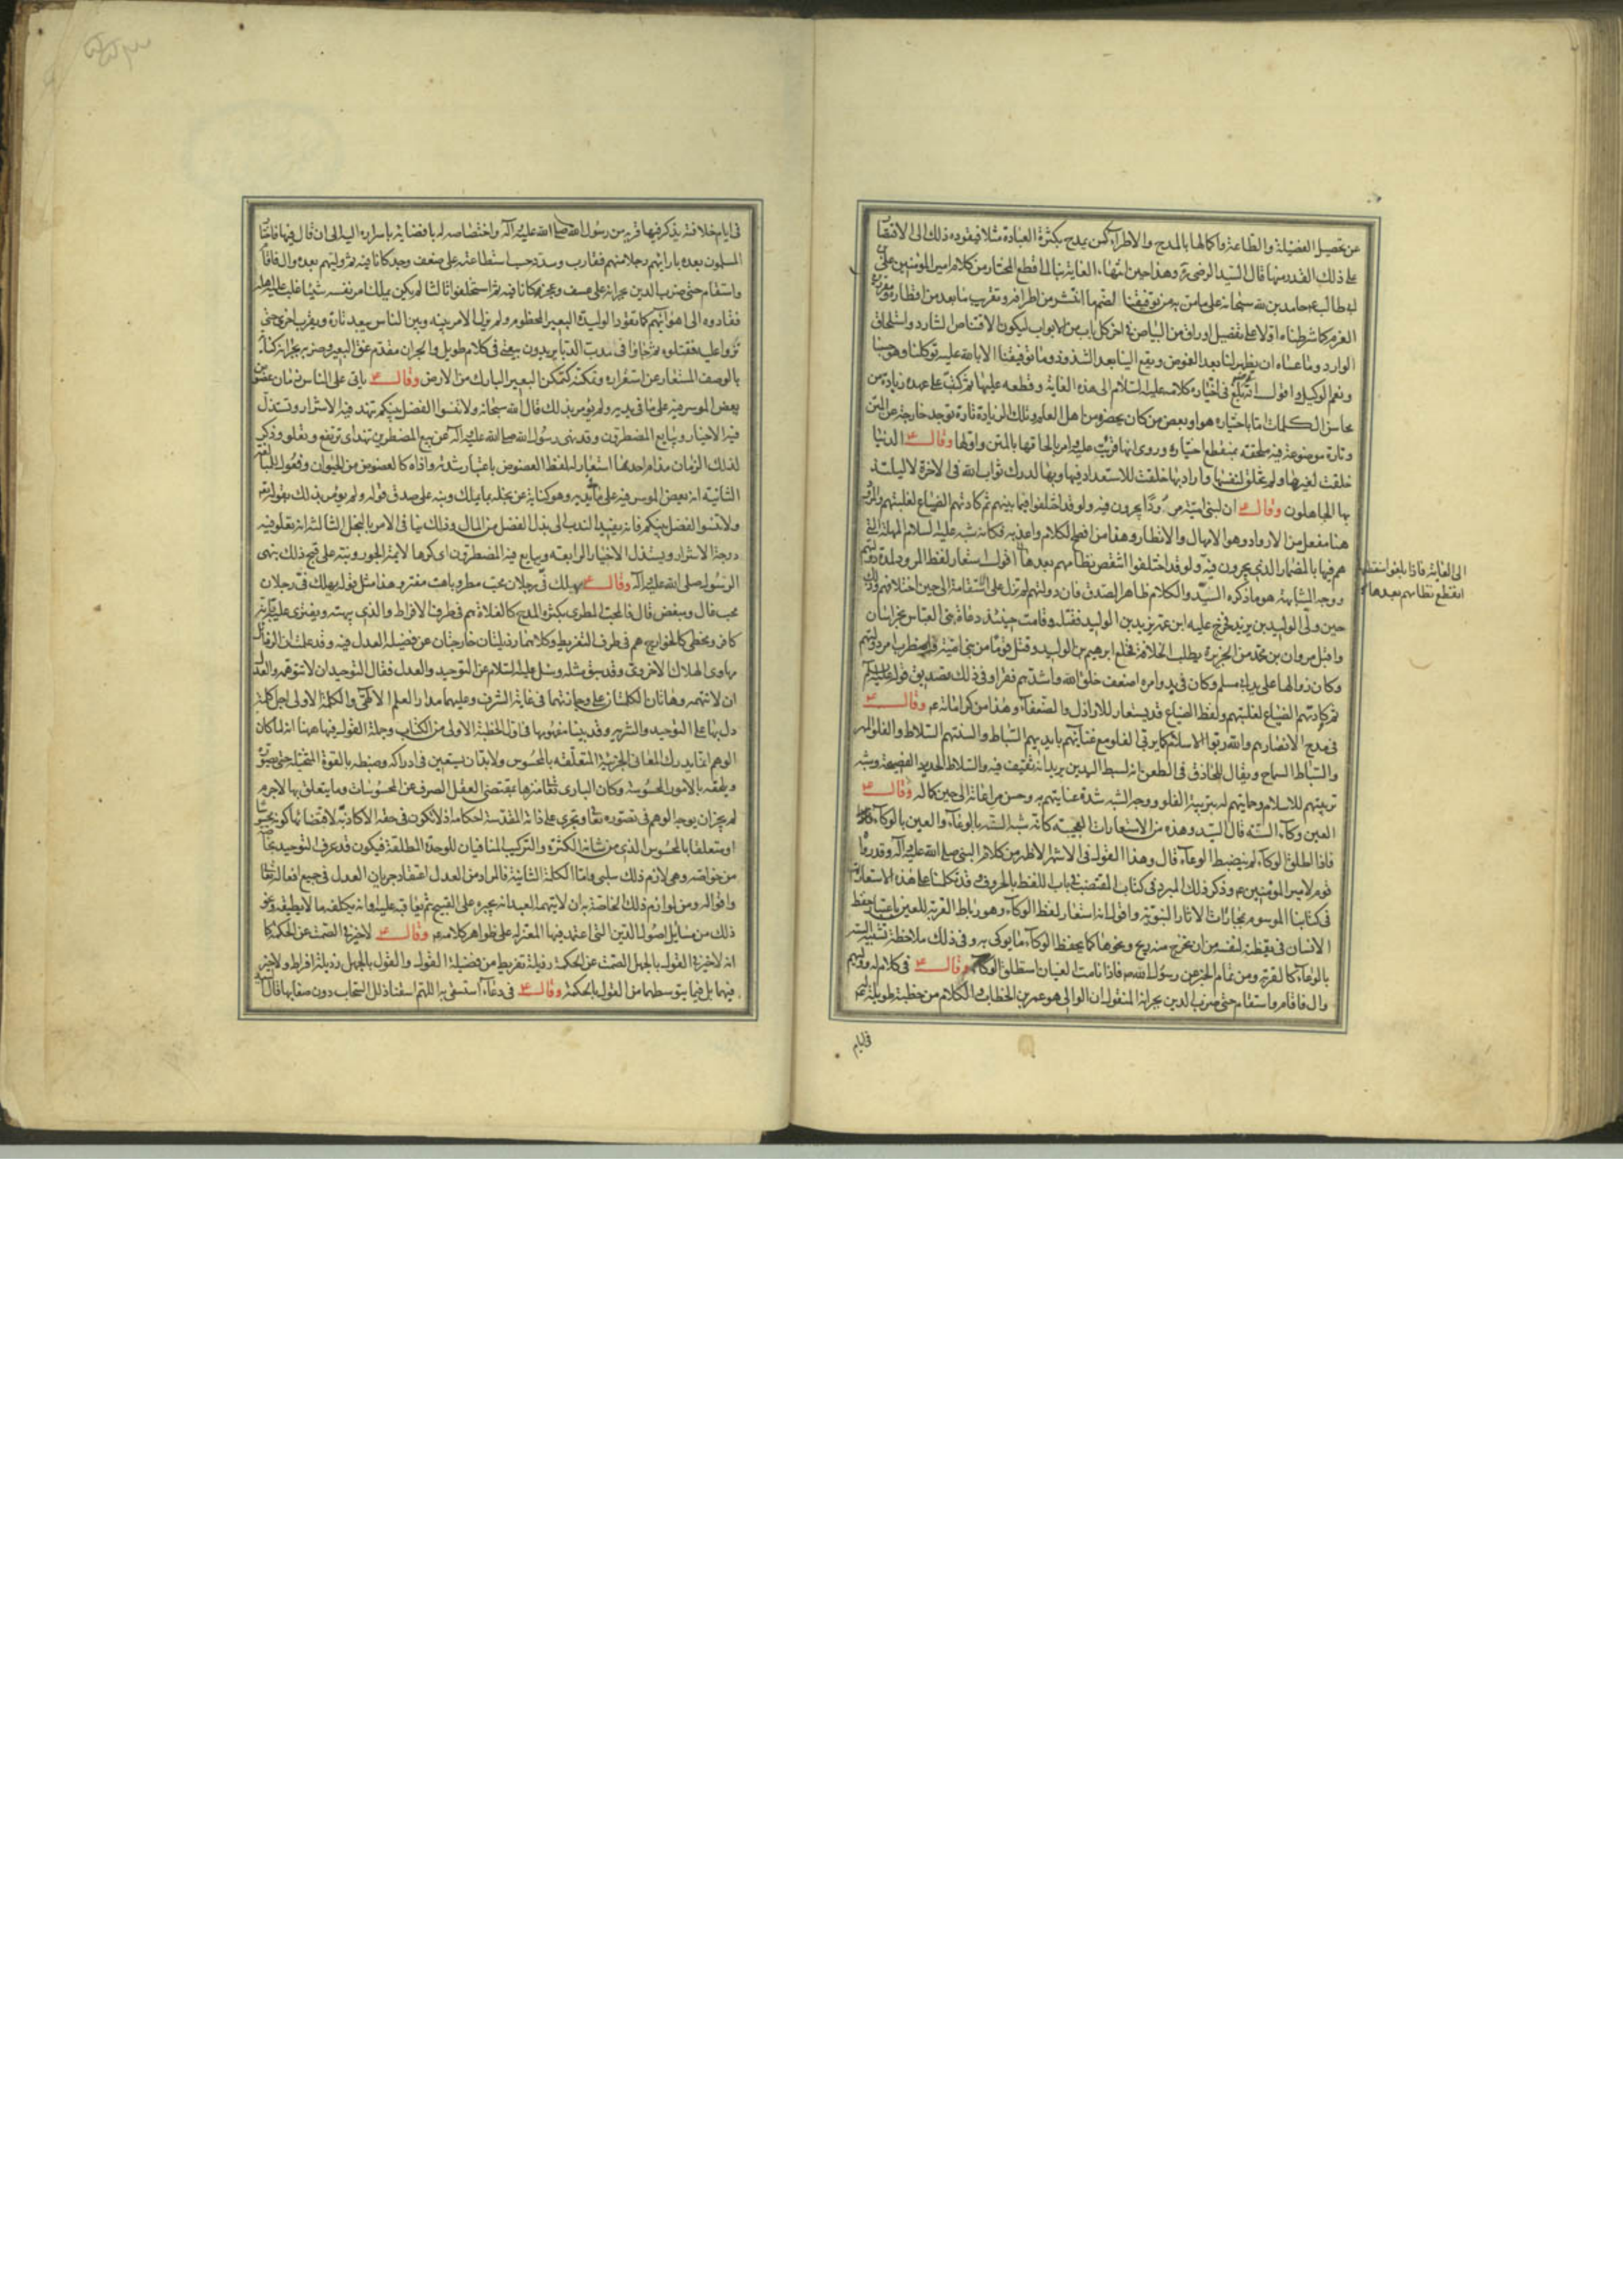 عن تحصيل الفضيلة والطاعة واكمالها بالمدح والاطراء كمن يمدح بكثرة العبادة مثلا فيقوده ذلك الى الاقتصار
على ذلك القدر منها قال السيد الرضى وهذا حين انتهاء الغاية بنا الى قطع المختار من كلام امير المومنين على بن
ابى طالب حامدين لله سبحانه على ما من به من توفيقنا لضم ما انتشر من اطرافه وتقريب ما بعد من اقطاره مقررين
العزم كما شرطناه اولا على تفصيل اوراق من البياض فى اخر كل باب من الابواب ليكون لاقتناص الشارد واستلحاق
الوارد وما عساه ان يظهر لنا بعد الغموض ويقع الينا بعد الشذوذ وما توفيقنا الا بالله عليه توكلنا وهو حسبنا
ونعم الوكيل واقول انه بلغ فى اختيار كلامه عليه السلام الى هذه الغاية وقطعه عليها ثم كتب على عهده زيادة من
محاسن الكلمات اما باختياره هو او بعض من كان يحضره من اهل العلم وتلك الزيادة تارة توجد خارجة عن المتن
وتارة موضوعة فيه ملحقة بمنقطع اختياره وروى انها قريت عليه وامر بالحاقها بالمتن واولها وقال ع الدنيا
خلقت لغيرها ولم تخلق لنفسها واراد بها خلقت للاستعداد فيها وبها لدرك ثواب الله فى الاخرة لا ليلتذ
بها الجاهلون وقال ع ان لبنى امية مرودا يجرون فيه ولو قد اختلفوا فيما بينهم ثم كادتهم الضباع لغلبتهم والمرود
هنا مفعل من الارواد وهو الامهال والانظار وهذا من افصح الكلام واغربه فكانه شبه عليه السلام المهلة التى
هم فيها بالمضمار الذى يجرون فيه ولو قد اختلفوا انتقض نظامهم بعدها اقول استعار لفظ المرود لمدة دولتهم
الى الغاية فاذا بلغوا منقطعها
انتقض نظامهم بعدها
ووجه المشابهة هو ما ذكره السيد والكلام ظاهر الصدق فان دولتهم لم تزل على الاستقامة الى حين اختلافهم وذلك
حين ولى الوليد بن يزيد فخرج عليه ابن عمه يزيد بن الوليد فقتله وقامت حينئذ دعاة بنى العباس بخراسان
واقبل مروان بن محمد من الجزيرة يطلب الخلافة فخلع ابرهيم بن الوليد وقتل قوما من بنى امية فاضطرب امر دولتهم
وكان زوالها على يد ابى مسلم وكان فى بدو امره اضعف خلق الله واشدهم فقرا وفى ذلك تصديق قوله عليه السلام
ثم كادتهم الضباع لغلبتهم ولفظ الضباع قد يستعار للاراذل والضعفاء وهذا من كراماته ع وقال ع
فى مدح الانصار هم والله ربوا الاسلام كما يربى الفلو مع غنائهم بايديهم السباط والسنتهم السلاط والفلو المهر
والسباط السماح ويقال للحاذق فى الطعن انه لسبط اليدين يريد انه ثقيف فيه والسلاط الحديد الفصيحة وشبه
تربيتهم للاسلام وحمايتهم له بتربية الفلو ووجه الشبه شدة عنايتهم به وحسن مراعاته الى حين كماله وقال ع
العين وكاء السته قال السيد وهذه من الاستعارات العجيبة كانه شبه السته بالوعاء والعين بالوكاء
فاذا اطلق الوكاء لم ينضبط الوعاء قال وهذا القول فى الاشهر الاظهر من كلام النبى صلى الله عليه وآله وقد رواه
قوم لامير المومنين ع وذكر ذلك المبرد فى كتاب المقتضب فى باب اللفظ بالحروف وقد تكلمنا على هذه الاستعارة
فى كتابنا الموسوم بمجازات الاثار النبوية واقول انه استعار لفظ الوكاء وهو رباط القربة للعين باعتبار حفظ
الانسان فى يقظته لنفسه من ان يخرج منه ريح ونحوها كما يحفظ الوكاء ما يوكى به وفى ذلك ملاحظة تشبيه السته
بالوعاء كالقربة ومن تمام الخبر عن رسول الله ص فاذا نامت العينان استطلق الوكاء وقال ع فى كلام له ووليهم
وال فاقام واستقام حتى ضرب الدين بجرانه المنقول ان الوالى هو عمر بن الخطاب والكلام من خطبة طويلة له ع
فى ايام
فى ايام خلافته يذكر فيها قربه من رسول الله صلى الله عليه وآله واختصاصه له بافضائه باسراره اليه الى ان قال فيها فاختار
المسلمون بعده بارائهم رجلا منهم فقارب وسدد حسب استطاعته على ضعف وحد كانا فيه ثم وليهم بعده وال فاقام
واستقام حتى ضرب الدين بجرانه على عسف وعجز كانا فيه ثم استخلفوا ثالثا لم يكن يملك امر نفسه شيئا غلب عليه اهله
فقادوه الى اهوائهم كما تقود الوليدة البعير المحظوم ولم يزل الامر بينه وبين الناس يبعد تارة ويقرب اخرى حتى
نزوا عليه فقتلوه ثم جاؤا فى مدب الدبا يريدون بيعتى فى كلام طويل والجران مقدم عنق البعير وضربه بجرانه كناية
بالوصف المستعار عن استقراره وتمكنه كتمكن البعير البارك من الارض وقال ع ياتى على الناس زمان عضوض
يعض الموسر فيه على ما فى يديه ولم يومر بذلك قال الله سبحانه ولا تنسوا الفضل بينكم تنهد فيه الاشرار وتستذل
فيه الاخيار ويبايع المضطرون وقد نهى رسول الله صلى الله عليه وآله عن بيع المضطرين تنهد اى ترتفع وتعلو وذكر
لذلك الزمان مذام احدها استعار له لفظ العضوض باعتبار شدته واذاه كالعضوض من الحيوان وفعول للمبالغة
الثانية انه يعض الموسر فيه على ما فى يديه وهو كناية عن بخله بما يملك ونبه على صدق قوله ولم يومر بذلك بقوله تعالى
ولا تنسوا الفضل بينكم فانه يفيد الندب الى بذل الفضل من المال وذلك ينافى الامر بالبخل الثالثة انه تعلو فيه
درجة الاشرار ويستذل الاخيار الرابعة ويبايع فيه المضطرون اى كرها لايمة الجور ونبه على قبح ذلك بنهى
الرسول صلى الله عليه وآله وقال ع يهلك فى رجلان محب مطر وباهت مفتر وهذا مثل قوله يهلك فى رجلان
محب غال ومبغض قال فالمحب المطرى بكثرة المدح كالغلاة هم فى طرف الافراط والذى يبهته ويفترى عليه
كافر ومخطى كالخوارج هم فى طرف التفريط وكلاهما رذيلتان خارجتان عن فضيلة العدل فيه وقد علمت ان الرذائل
مهاوى الهلاك الاخروى وقد سبق مثله وسئل عليه السلام عن التوحيد والعدل فقال التوحيد ان لا تتوهمه والعدل
ان لا تتهمه وهاتان الكلمتان على وجازتهما فى غاية الشرف وعليهما مدار العلم الالهى والكلمة الاولى اجل كلمة
دل بها على التوحيد والتنزيه وقد بينا مفهومها فى اول الخطبة الاولى من الكتاب وجملة القول فيها ههنا انه لما كان
الوهم انما يدرك المعانى الجزئية المتعلقة بالمحسوس ولا بد ان يستعين فى ادراكه وضبطه بالقوة المتخيلة حتى
ويلحقه بالامور المحسوسة وكان البارى تعالى منزها بمقتضى العقل الصرف عن المحسوسات وما يتعلق بها لا جرم
لم يجز ان يوجه الوهم فى تصوره تعالى وتجرى على ذاته المقدسة احكامه اذ لا تكون فى حقه الا كاذبة لاقتضائها كونه محسوسا
او متعلقا بالمحسوس الذى من شانه الكثرة والتركيب المنافيان للوحدة المطلقة فيكون قد عرف التوحيد بخاصة
من خواصه وهى لازم ذلك سلبى واما الكلمة الثانية فالمراد من العدل اعتقاد جريان العدل فى جميع افعاله تعالى
واقواله ومن لوازم ذلك الخاصة به ان لا يتهم العبد انه يجبره على القبيح ثم يعاقبه عليه او انه يكلفه ما لا يطيقه ونحو
ذلك من مسايل اصول الدين التى اعتمد فيها المعتزلة على ظواهر كلامه ع وقال ع لا خير فى الصمت عن الحكم كما
انه لا خير فى القول بالجهل الصمت عن الحكمة رذيلة تفريط من فضيلة القول والقول بالجهل رذيلة افراط ولا خير
فيهما بل فيما يتوسطهما من القول بالحكمة وقال ع فى دعاء استسقى به اللهم اسقنا ذلل السحاب دون صعابها قال السيد